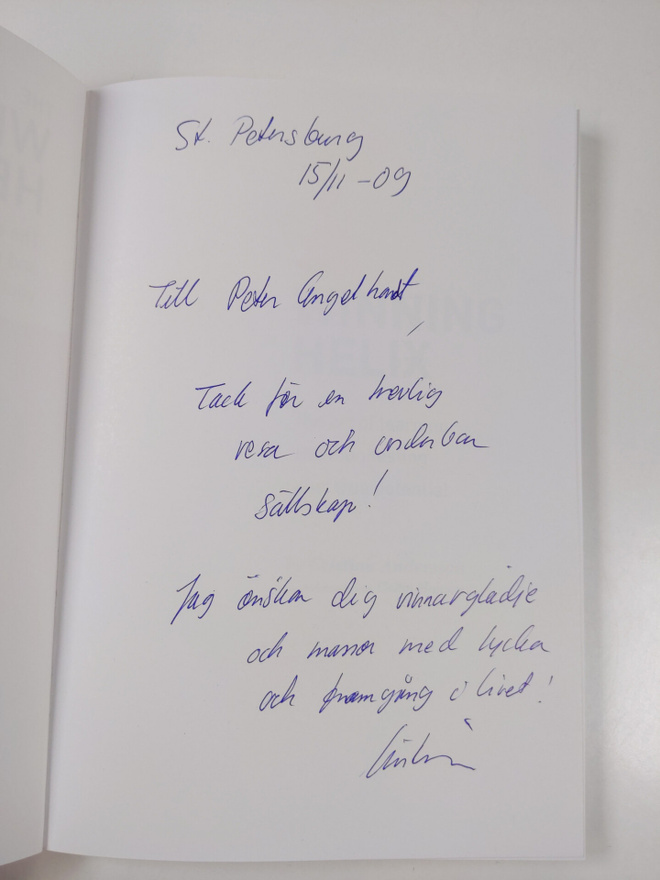 St. Petersburg
15/11 -09
Till Peter Angelhardt,
Tack för en trevlig
resa och underbar
sällskap!
Jag önskar dig vinnarglädje
och massor med lycka
och framgång i livet!
HELIX